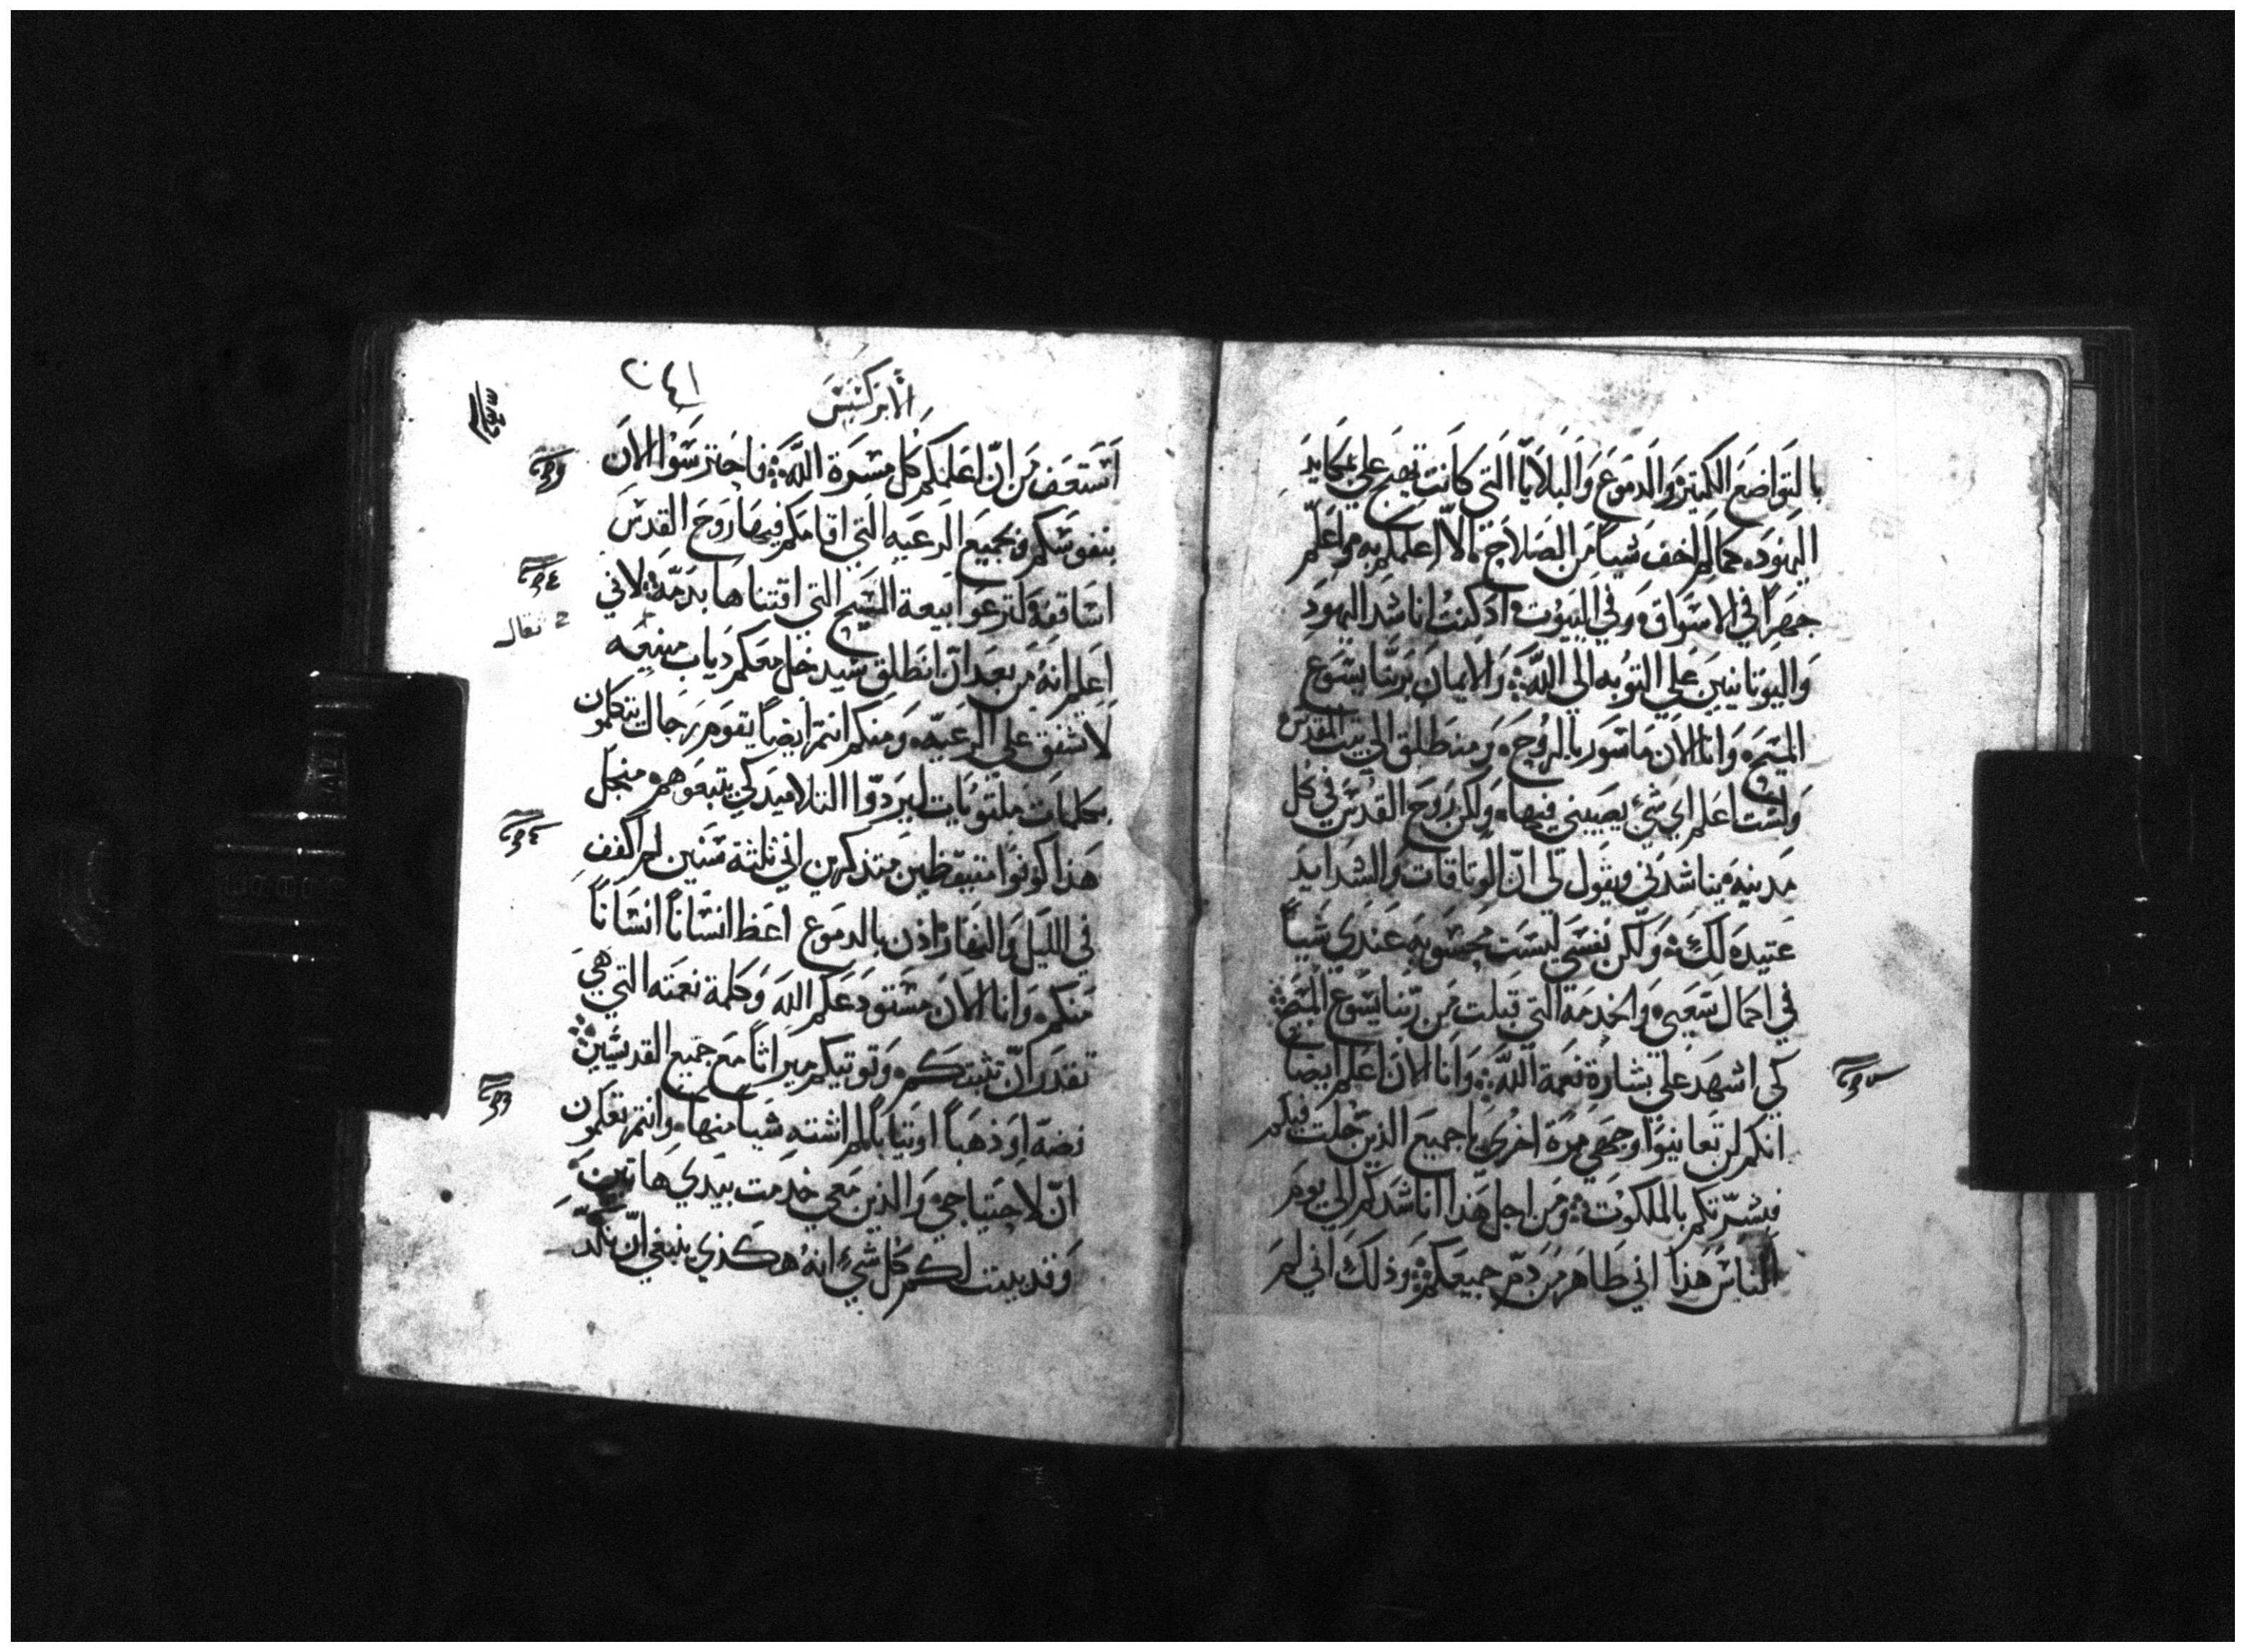 بالتواضع الكتير والدموع والبلايا التي كانت تهيج علي بمكايد
اليهود، كما لم اخف شياً من الصلاح الا اعلمكم به واعلم
جهراً في الاسواق وفي البيوت اذ كنت اناشد اليهود
واليونانيين علي التوبه الي الله والايمان بربنا يسوع
المسيح وانا الان ماسور بالروح ومنطلق الي بيت المقدس
ولست اعلم اي شي يصيبني فيها، ولكن روح القدس في كل
مدينه يناشدني ويقول لي ان الوتاقات والشدايد
عتيده لك، ولكن نفسي ليست محسوبه عندي شياً
في اكمال سعيي والخدمه التي قبلت من ربنا يسوع المسيح
كي اشهد علي بشارة نعمة الله وانا الان اعلم ايضاً
انكم لن تعاينوا وجهي مرة اخري يا جميع الذين جلت فيكم
فبشرتكم بالملكوت ومن اجل هذا اناشدكم الي يوم
الناس هذا اني طاهر من دم جميعكم وذلك اني لم
الابركسيس
استعف من ان اعلمكم كل مسرة الله فاحترسوا الان
بنفوسكم وبجميع الرعيه التي اقامكم فيها روح القدس
اساقفه لترعوا بيعة المسيح التي اقتناها بدمه لاني
اعلم انه من بعد ان انطلق سيدخل معكم دياب منيعه
لا تشفق علي الرعيه، ومنكم انتم ايضاً يقوم رجال يتكلمون
بكلمات ملتويات ليردوا التلاميد كي يتبعوهم من اجل
هذا كونوا متيقظين متذكرين اني ثلثة سنين لم اكفف
في الليل والنهار اذن بالدموع اعظ انساناً انساناً
منكم، وانا الان مستودعكم الله وكلمة نعمته التي هي
تقدر ان تثبتكم، وتوتيكم ميراثاً مع جميع القديسين
فضه او ذهباً او تياباً لم اشته شياً منها، وانتم تعلمون
ان لاحتياجي والذين معي خدمت بيدي هاتين
وقد بينت لكم كل شي انه هكذي ينبغي ان نكد